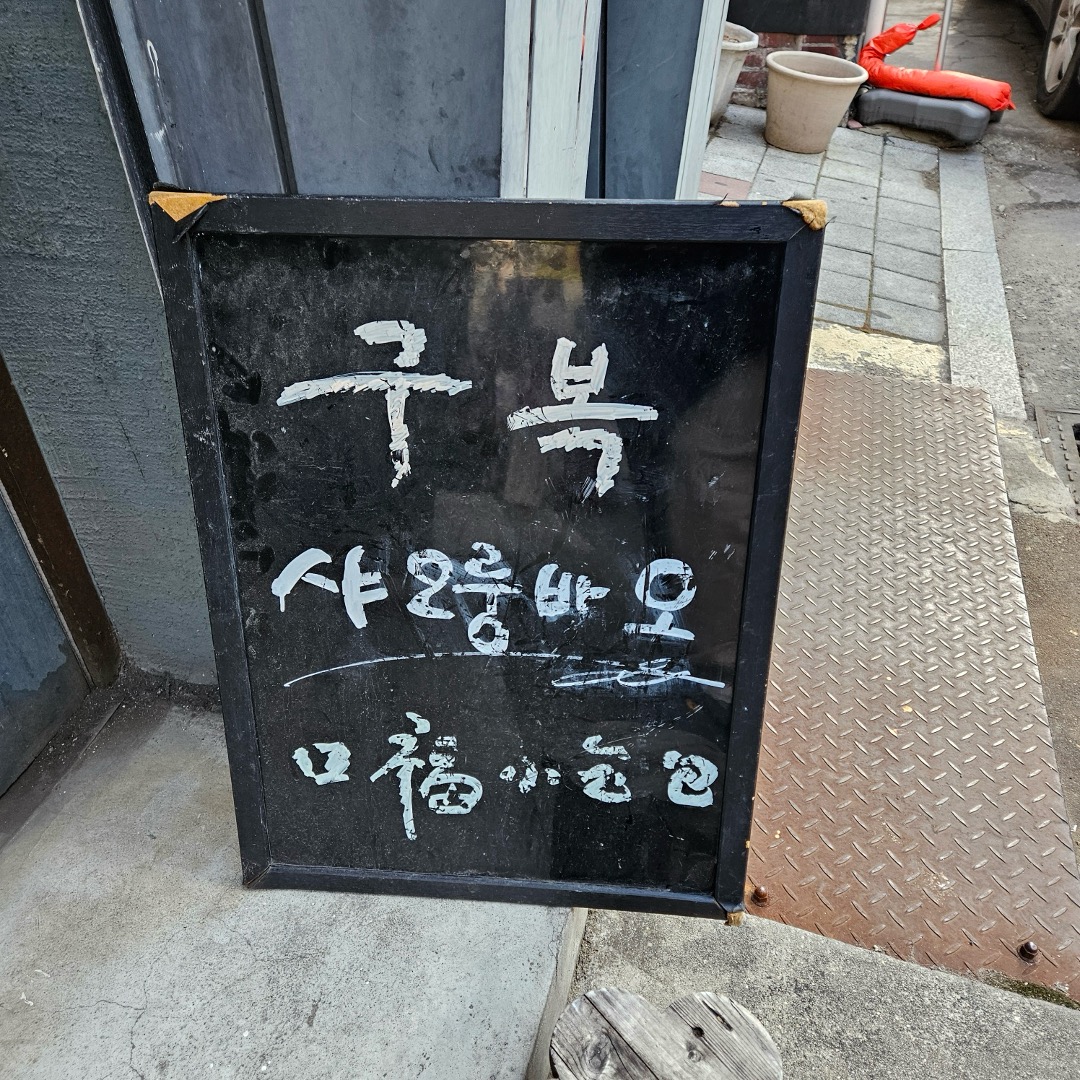 구복
샤오롱바오
口福小옌